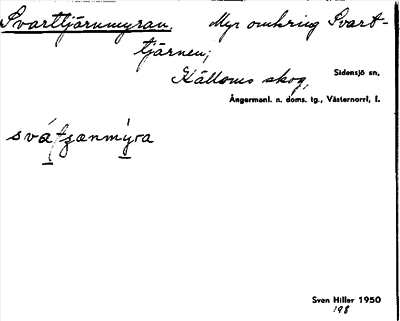 Svarttjärnmyran. Myr omkring Svart-
tjärnen;
Källoms skog, Sidensjö sn,
Ångermanl. n. doms. tg., Västernorrl, l.
svátjænmýra
Sven Hiller 1950
198